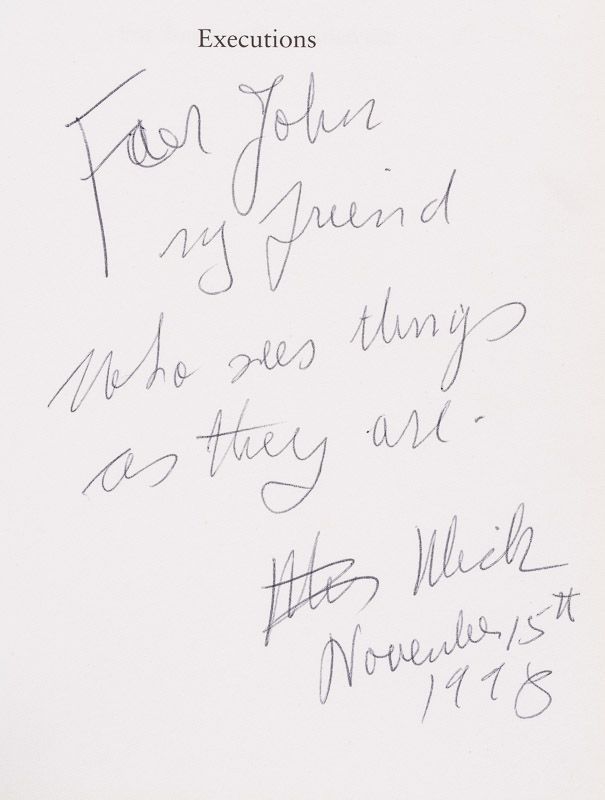 Executions
For John
my friend
who sees things
as they are.
November 15th
1998